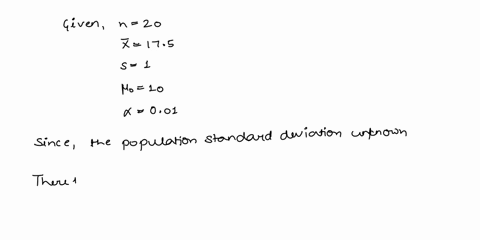 Given, n = 20
x̄ = 17.5
s = 1
μ₀ = 20
α = 0.01
Since, the population standard deviation unknown
There